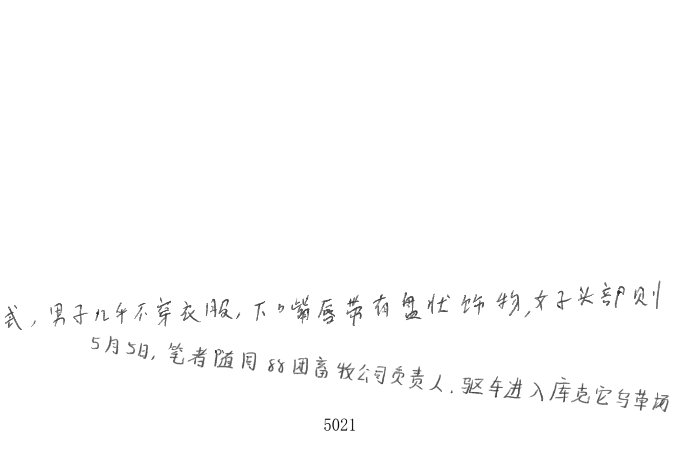 式，男子几乎不穿衣服，下嘴唇带有盘状饰物，女子头部则
5月5日，笔者随同88团畜牧公司负责人，驱车进入库克它乌草场
5021